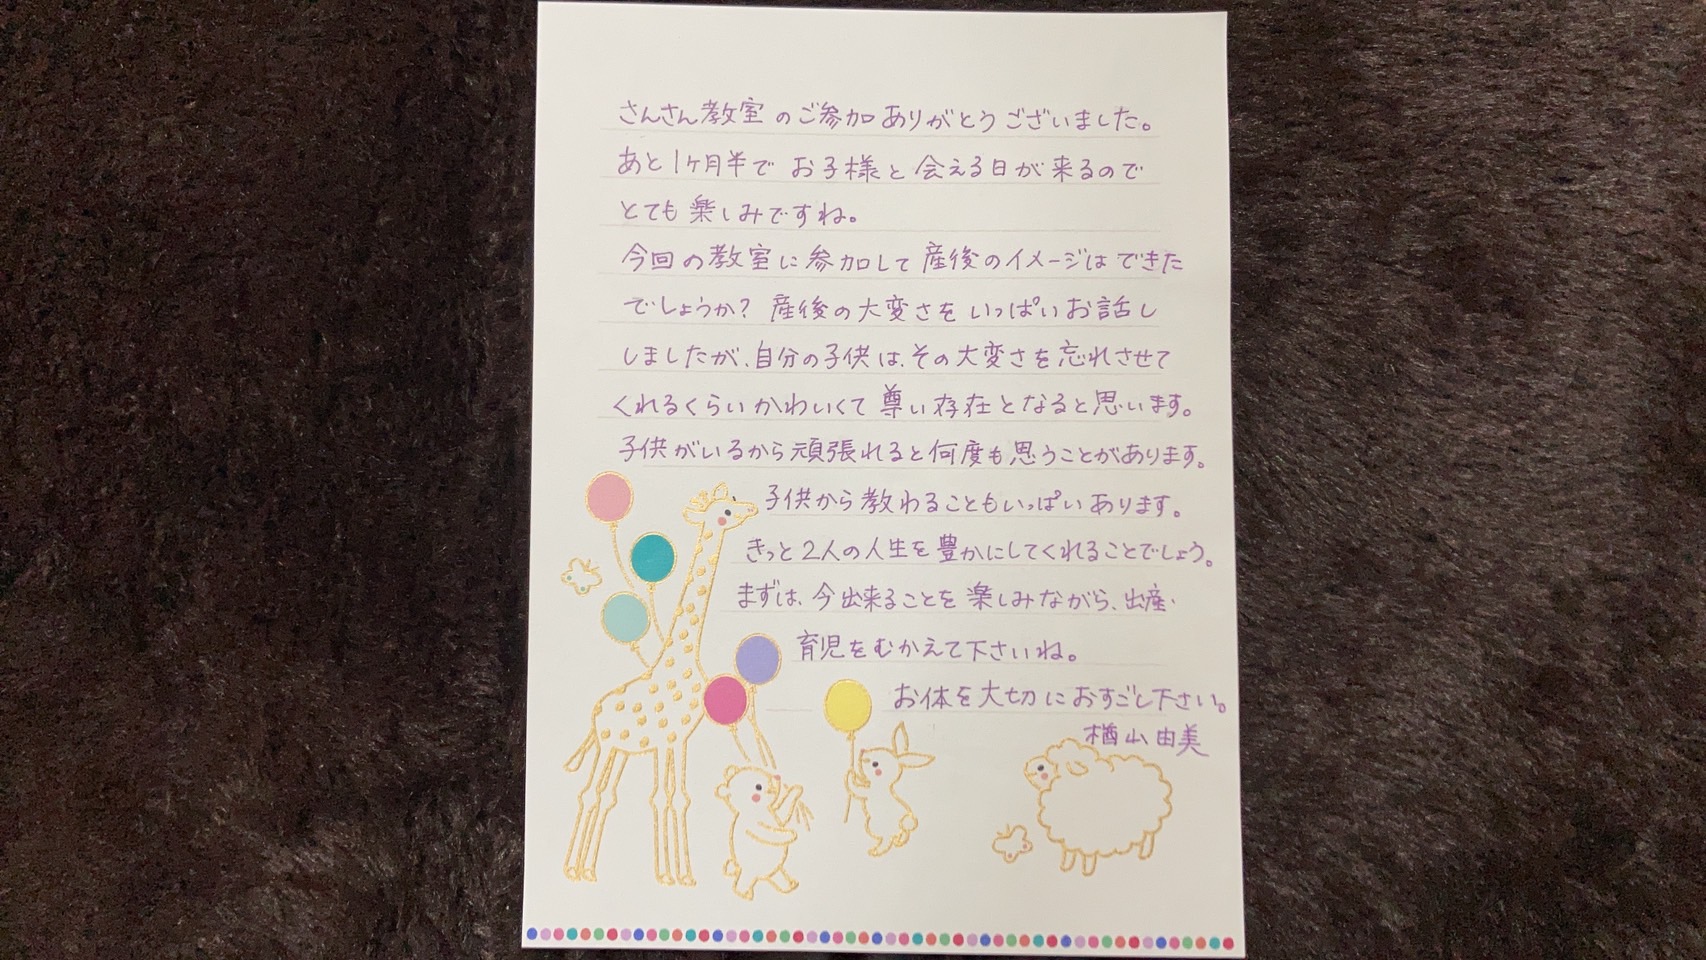 さんさん教室のご参加ありがとうございました。
あと1ヶ月半で お子様と会える日が来るので
とても楽しみですね。
今回の教室に参加して産後のイメージはできた
でしょうか? 産後の大変さをいっぱいお話し
しましたが、自分の子供は、その大変さを忘れさせて
くれるくらいかわいくて尊い存在となると思います。
子供がいるから頑張れると何度も思うことがあります。
子供から教わることもいっぱいあります。
きっと2人の人生を豊かにしてくれることでしょう。
まずは、今出来ることを楽しみながら、出産・
育児をむかえて下さいね。
お体を大切におすごし下さい。
楢山由美